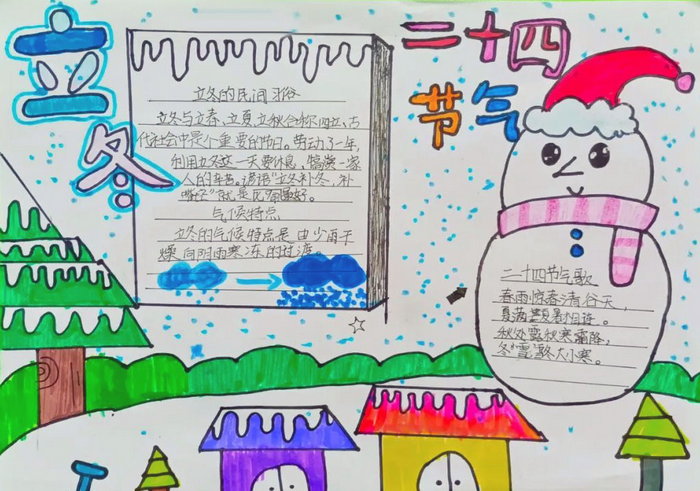 立冬
二十四
节气
立冬的民间习俗
立冬与立春、立夏、立秋合称四立、古
代社会中是个重要的节日。劳动了一年,
利用立冬这一天要休息,犒赏一家
人的辛苦。谚语"立冬补冬,补
嘴空"就是
气候特点
立冬的气候特点是由少雨干
燥向阴雨寒冻的过渡。
二十四节气歌
春雨惊春清谷天,
夏满芒夏暑相连。
秋处露秋寒霜降,
冬雪雪冬大小寒。